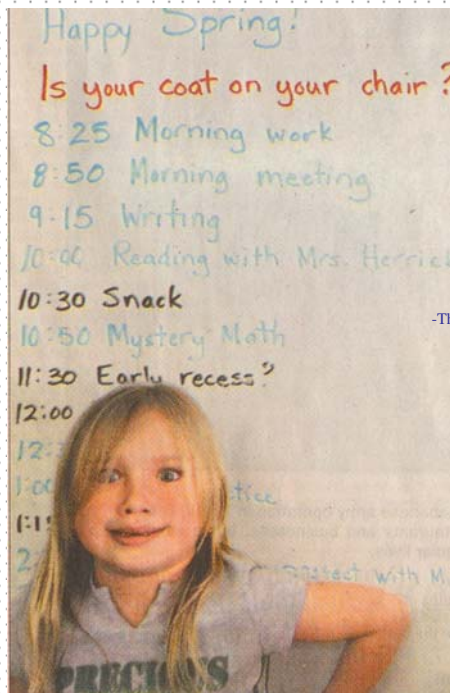 Happy Spring!
Is your coat on your chair?
8:25 Morning work
8:50 Morning meeting
9:15 Writing
10:00 Reading with Mrs.
10:30 Snack
10:50 Mystery Math
11:30 Early recess?
12:00
with M
-Th
PRECIOUS